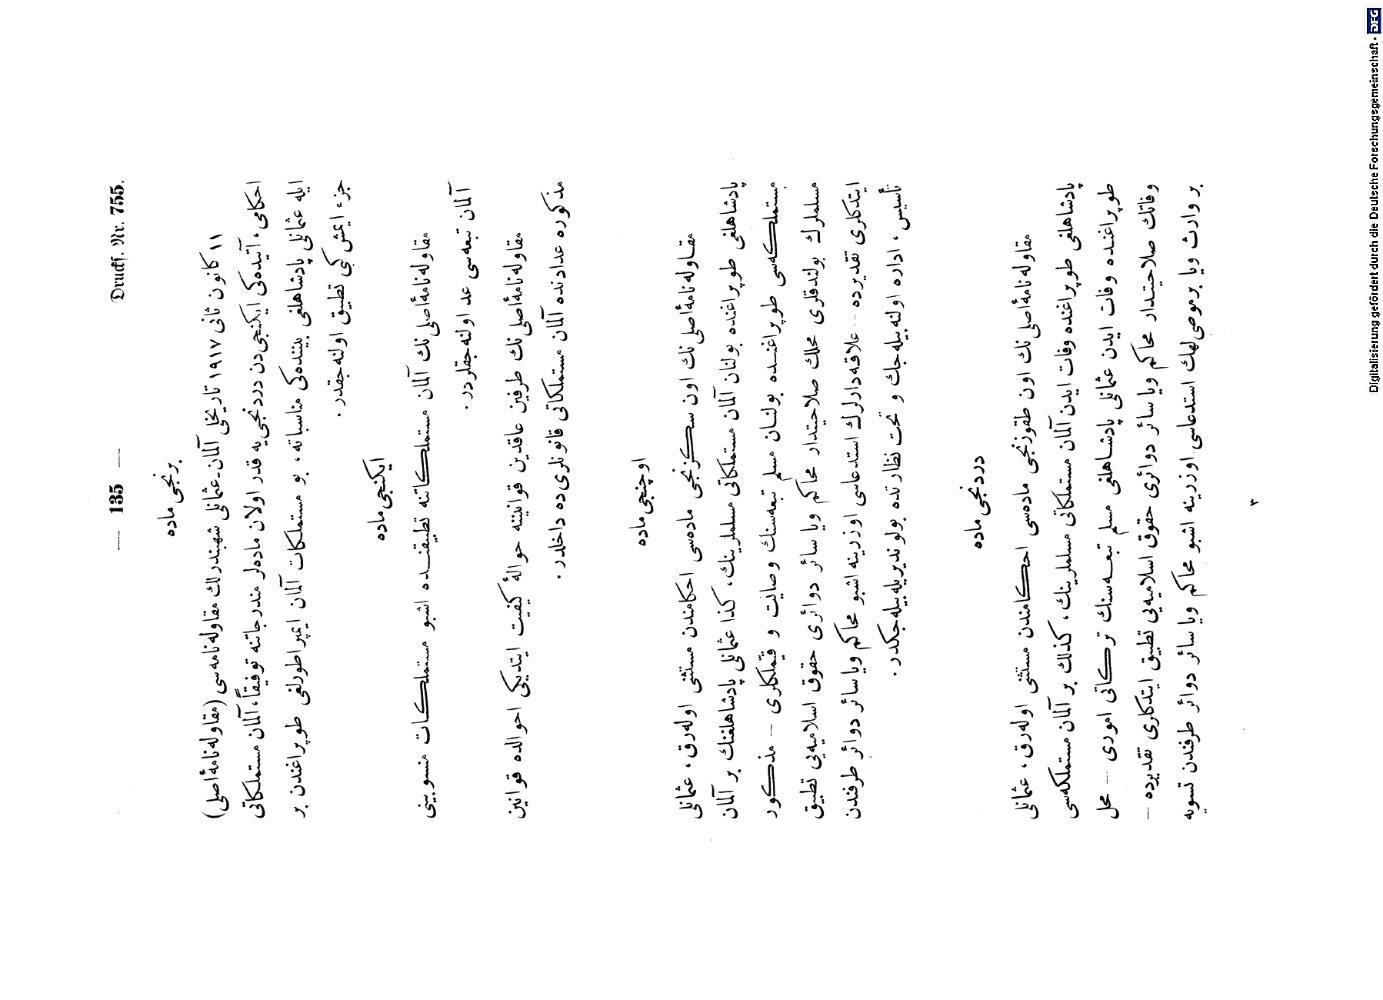 — 135 —
Druckf. Nr. 755.
برنجی ماده
١١ كانون ثانی ١٩١٧ تاریخلی آلمان ـ عثمانلی شهبندرلك مقاوله‌نامه‌سی (مقاوله‌نامهٔ اصلی)
احكامی، آتیده‌كی ایكنجی‌دن دردنجی‌یه قدر اولان ماده‌لر مندرجاتنه توفیقاً، آلمان مستملكاتی
ایله عثمانلی پادشاهلغی بیننده‌كی مناسباته، بو مستملكات آلمان ایمپراطورلغی طوپراغندن بر
جزء ایمش كبی تطبیق اولنه‌جقدر.
ایكنجی ماده
مقاوله‌نامهٔ اصلی نك آلمان مستملكاتنه تطبیقنده اشبو مستملكات منسوبینی
آلمان تبعه‌سی عد اولنه‌جقلردر.
مقاوله‌نامهٔ اصلی نك طرفین عاقدین قوانیننه حوالهٔ كیفیت ایتدیكی احوالده قوانین
مذكوره عدادنده آلمان مستملكاتی قانونلری ده داخلدر.
اوچنجی ماده
مقاوله‌نامهٔ اصلی نك اون سكزنجی ماده‌سی احكامندن مستثنی اوله‌رق، عثمانلی
پادشاهلغی طوپراغنده بولنان آلمان مستملكاتی مسلملرینك، كذا عثمانلی پادشاهلغنك بر آلمان
مستملكه‌سی طوپراغنده بولنان مسلم تبعه‌سنك وصایت و قیملكلری — مذكور
مسلملرك بولندقلری محلك صلاحیتدار محاكم ویا سائر دوائری حقوق اسلامیه‌یی تطبیق
ایتدكلری تقدیرده — علاقه‌دارلرك استدعاسی اوزرینه اشبو محاكم ویا سائر دوائر طرفندن
تأسیس، اداره اولنه‌بیله‌جك و تحت نظارتده بولوندیریله‌بیله‌جكدر.
دردنجی ماده
مقاوله‌نامهٔ اصلی نك اون طقوزنجی ماده‌سی احكامندن مستثنی اوله‌رق، عثمانلی
پادشاهلغی طوپراغنده وفات ایدن آلمان مستملكاتی مسلملرینك، كذلك بر آلمان مستملكه‌سی
طوپراغنده وفات ایدن عثمانلی پادشاهلغی مسلم تبعه‌سنك تركاتی اموری — محل
وفاتك صلاحیتدار محاكم ویا سائر دوائری حقوق اسلامیه‌یی تطبیق ایتدكلری تقدیرده —
بر وارث ویا بر موصی‌لهك استدعاسی اوزرینه اشبو محاكم ویا سائر دوائر طرفندن تسویه
٣
Digitalisierung gefördert durch die Deutsche Forschungsgemeinschaft · DFG